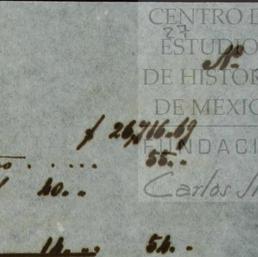 CENTRO D
27
ESTUDIO
DE HISTOR
DE MEXIC
FUNDACI
Carlos Sl
No
$ 26,716.69
55 ..
40 ..
14 .. 54 ..